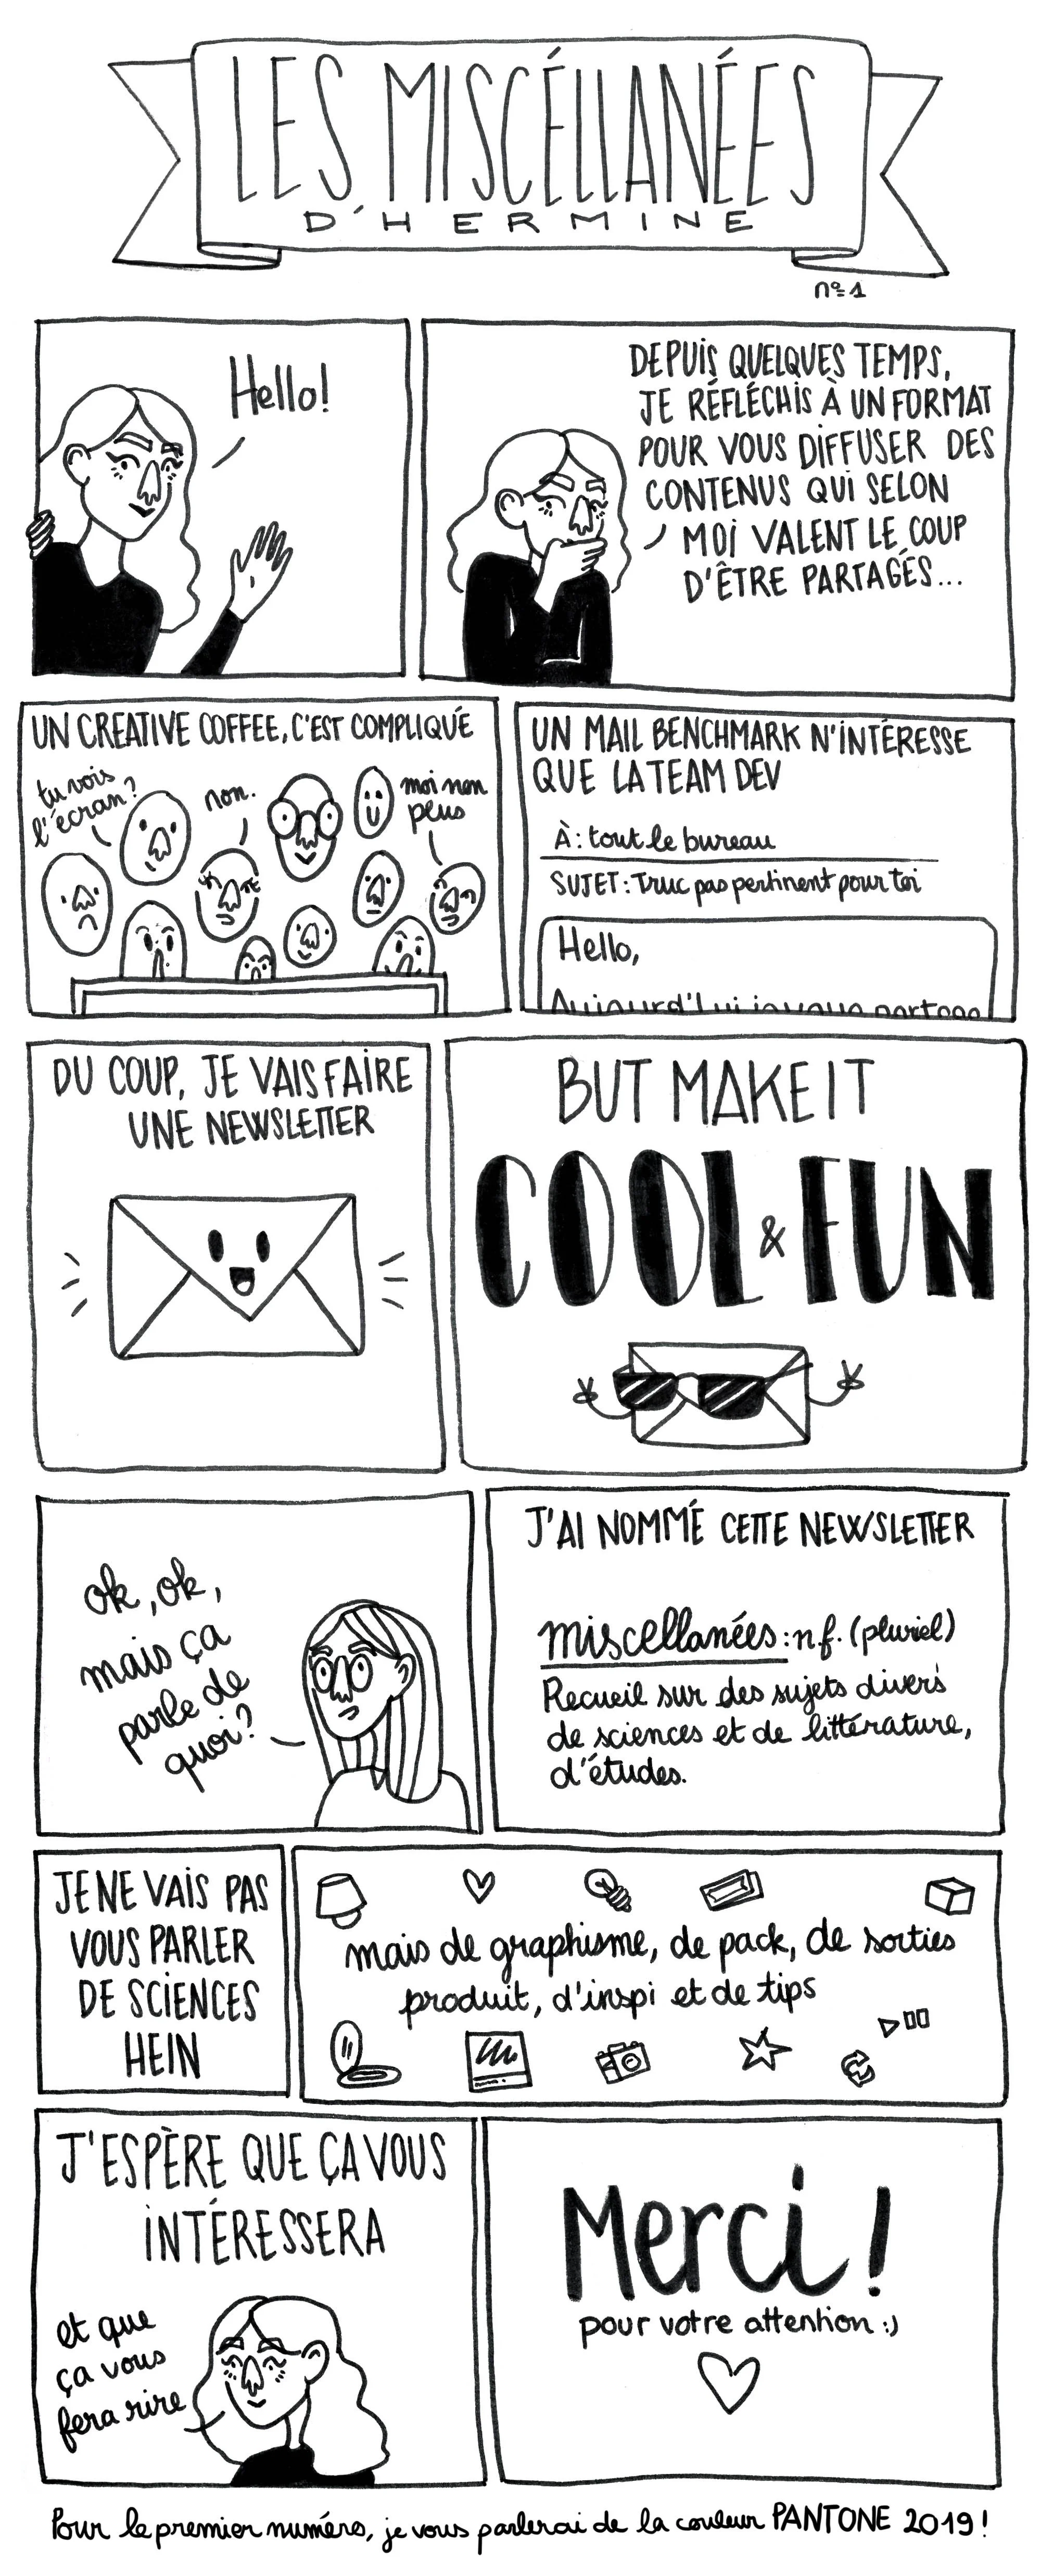 LES MISCÉLLANÉES
D'HERMINE
n°1
Hello!
DEPUIS QUELQUES TEMPS,
JE RÉFLÉCHIS À UN FORMAT
POUR VOUS DIFFUSER DES
CONTENUS QUI SELON
MOI VALENT LE COUP
D'ÊTRE PARTAGÉS...
UN CREATIVE COFFEE, C'EST COMPLIQUÉ
tu vois
l'écran?
non.
moi non
plus
UN MAIL BENCHMARK N'INTÉRESSE
QUE LA TEAM DEV
À : tout le bureau
SUJET : Truc pas pertinent pour toi
Hello,
Aujourd'hui je vous partage
DU COUP, JE VAIS FAIRE
UNE NEWSLETTER
BUT MAKE IT
COOL & FUN
ok, ok,
mais ça
parle de
quoi?
J'AI NOMMÉ CETTE NEWSLETTER
miscellanées : nf. (pluriel)
Recueil sur des sujets divers
de sciences et de littérature,
d'études.
JE NE VAIS PAS
VOUS PARLER
DE SCIENCES
HEIN
mais de graphisme, de pack, de sorties
produit, d'inspi et de tips
J'ESPÈRE QUE ÇA VOUS
INTÉRESSERA
et que
ça vous
fera rire
Merci !
pour votre attention :)
Pour le premier numéro, je vous parlerai de la couleur PANTONE 2019 !